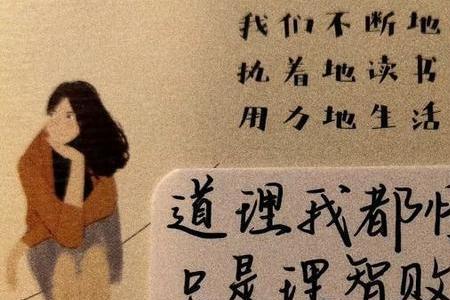 我们不断地
执着地读书
用力地生活
道理我都
只是理智败